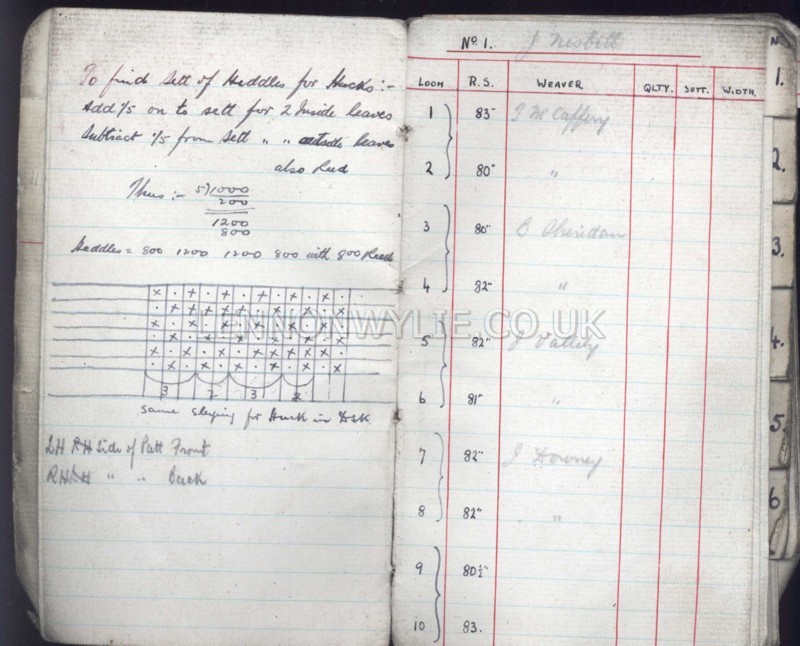 To find Sett of Heddles for Hucks :-
Add 1/5 on to sett for 2 Inside leaves
Subtract 1/5 from Sett " " outside leaves
also Reed
Thus :- 5)1000
200
1200
800
Heddles = 800 1200 1200 800 with 800 Reed
3 2 3 2
same sleying for Huck in
LH RH Side of Patt Front
RH LH " " Back
LENNONWYLIE.CO.UK
No. 1. J Nesbitt
LOOM R.S. WEAVER QLTY. SETT. WIDTH.
1 83" J McCaffery
2 80" "
3 80" B Sheridan
4 82" "
5 82" J
6 81" "
7 82" J Downey
8 82" "
9 80½"
10 83.
No
1.
2.
3.
4.
5.
6